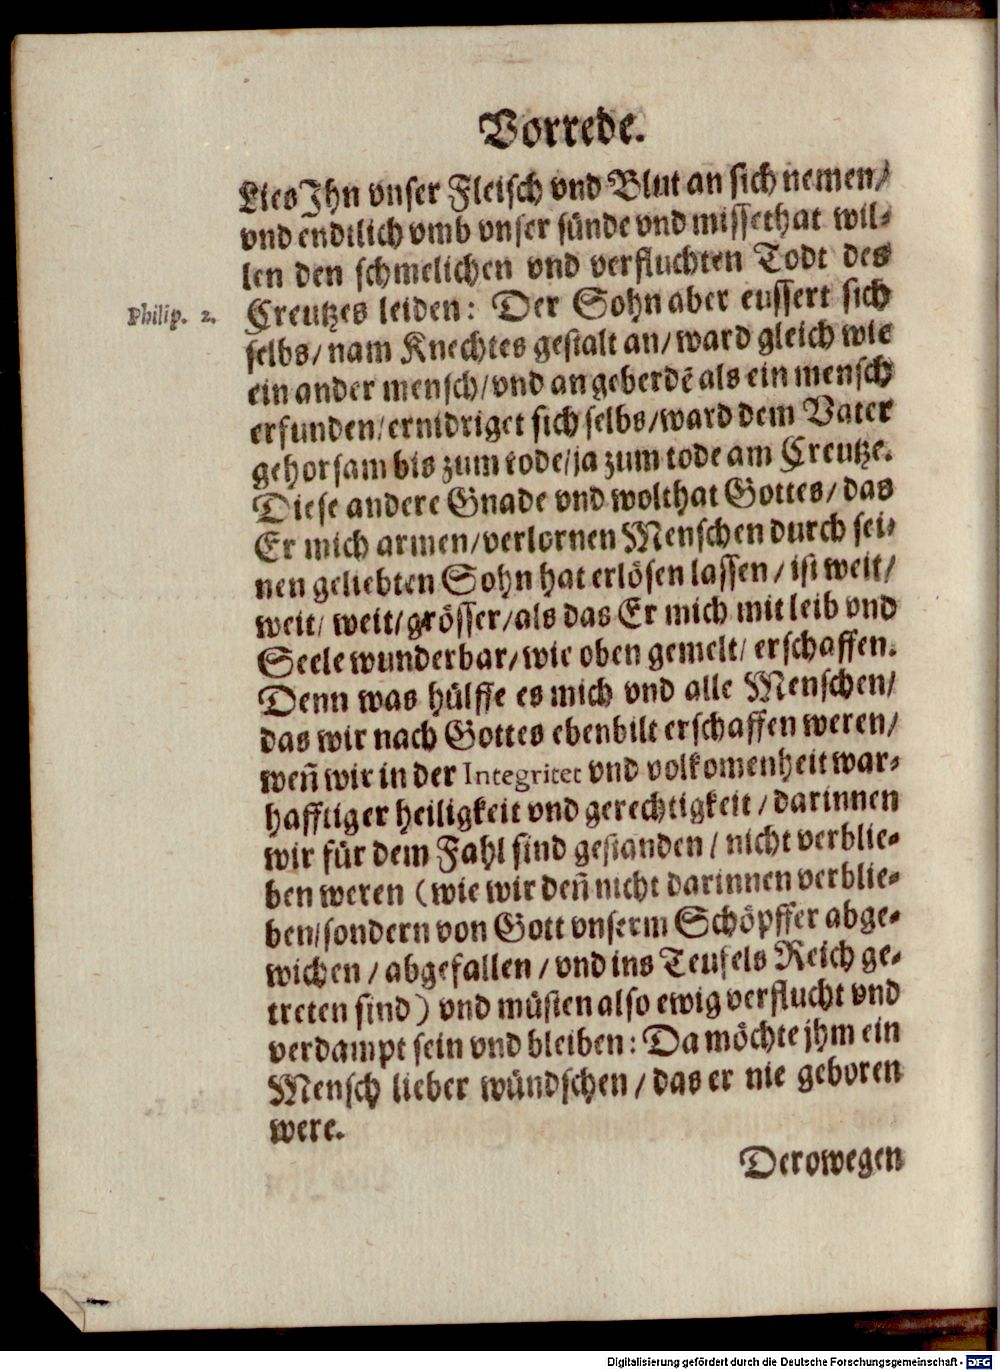 Vorrede.
Lies Jhn vnser Fleisch vnd Blut an sich nemen/
vnd endtlich vmb vnser sünde vnd missethat wil-
len den schmelichen vnd verfluchten Todt des
Philip. 2. Creutzes leiden: Der Sohn aber eussert sich
selbs/ nam Knechtes gestalt an/ ward gleich wie
ein ander mensch/ vnd an geberdē als ein mensch
erfunden/ ernidriget sich selbs/ ward dem Vater
gehorsam bis zum tode/ ja zum tode am Creutze.
Diese andere Gnade vnd wolthat Gottes/ das
Er mich armen/ verlornen Menschen durch sei-
nen geliebten Sohn hat erlösen lassen/ ist weit/
weit/ weit/ grösser/ als das Er mich mit leib vnd
Seele wunderbar/ wie oben gemelt/ erschaffen.
Denn was hülffe es mich vnd alle Menschen/
das wir nach Gottes ebenbilt erschaffen weren/
weñ wir in der Integritet vnd volkomenheit war-
hafftiger heiligkeit vnd gerechtigkeit/ darinnen
wir für dem Fahl sind gestanden/ nicht verblie-
ben weren (wie wir deñ nicht darinnen verblie-
ben/ sondern von Gott vnserm Schöpffer abge-
wichen/ abgefallen/ vnd ins Teufels Reich ge-
treten sind) vnd müsten also ewig verflucht vnd
verdampt sein vnd bleiben: Da möchte jhm ein
Mensch lieber wündschen/ das er nie geboren
were.
Derowegen
Digitalisierung gefördert durch die Deutsche Forschungsgemeinschaft - DFG